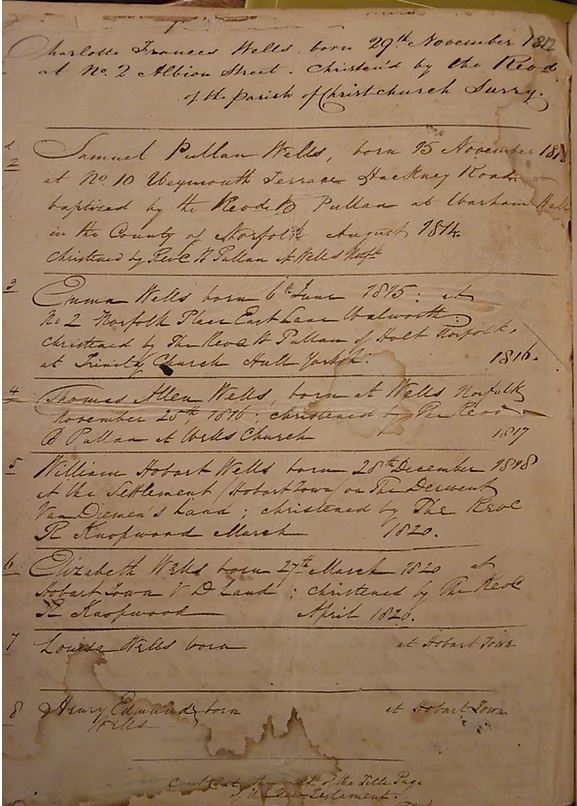 Charlotte Frances Wells, born 29th November 1812
at No. 2 Albion Street. Christen'd by the Revd
of the parish of Christchurch Surry.
2 Samuel Pullan Wells, born 15 November 181
at No. 10 Weymouth Terrace Hackney Road
baptized by the Revd B Pullan at Warham
in the County of Norfolk August 1814
christened by Revd B Pullan at Wells Norfk
3 Emma Wells born 6th June 1815; at
No 2 Norfolk Place East Lane Walworth.
christened by The Revd B Pullan of Holt Norfolk,
at Trinity Church Hull Yorksh. 1816.
4 Thomas Allen Wells, born at Wells Norfolk
November 1816; christened by The Revd
B Pullan at Wells Church 1817
5 William Hobart Wells born 28th December 1818
at the Settlement (Hobart Town) on The Derwent
Van Diemen's Land; christened by The Revd
R Knopwood March 1820.
6 Elizabeth Wells born 27th March 1820 at
Hobart Town V D Land; christened by The Revd
R Knopwood April 1820.
7 Louisa Wells born at Hobart Town
8 Henry Edmund born at Hobart Town
Wells
of the Title Page
of the New Testament.